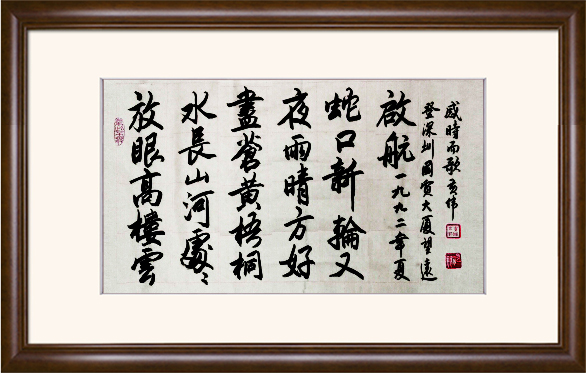 放眼高樓雲
水長山河處々
盡蒼黄梧桐
夜雨晴方好
蛇口新輪又
啟航 一九九二年夏
登深圳國貿大厦望遠
感時而歌